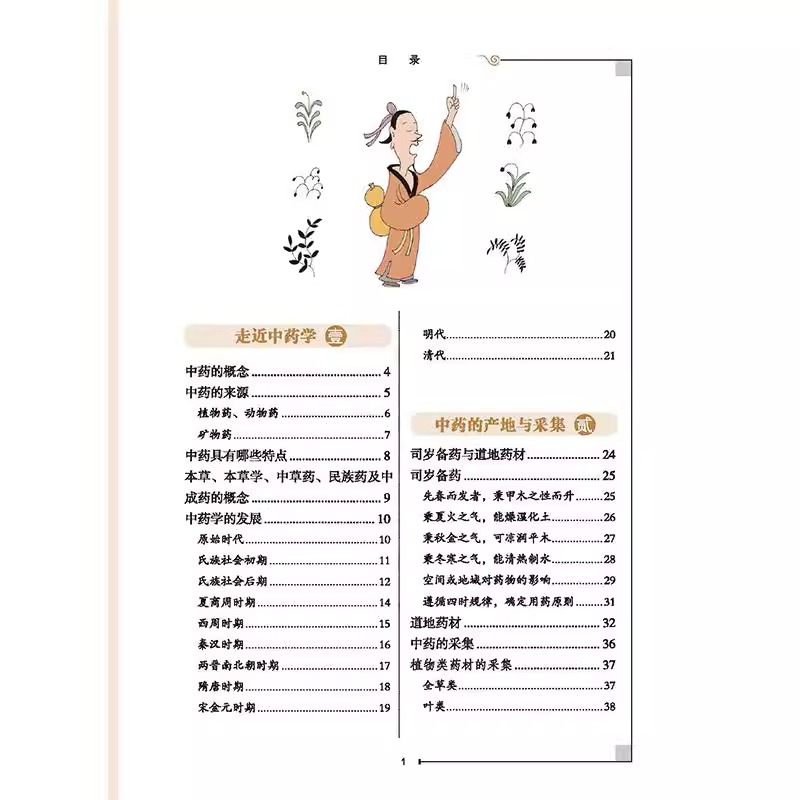 目 录
走近中药学 壹
中药的概念 4
中药的来源 5
植物药、动物药 6
矿物药 7
中药具有哪些特点 8
本草、本草学、中草药、民族药及中
成药的概念 9
中药学的发展 10
原始时代 10
氏族社会初期 11
氏族社会后期 12
夏商周时期 14
西周时期 15
秦汉时期 16
两晋南北朝时期 17
隋唐时期 18
宋金元时期 19
明代 20
清代 21
中药的产地与采集 贰
司岁备药与道地药材 24
司岁备药 25
先春而发者，秉甲木之性而升 25
秉夏火之气，能燥湿化土 26
秉秋金之气，可凉润平木 27
秉冬寒之气，能清热制水 28
空间或地域对药物的影响 29
遵循四时规律，确定用药原则 31
道地药材 32
中药的采集 36
植物类药材的采集 37
全草类 37
叶类 38
1